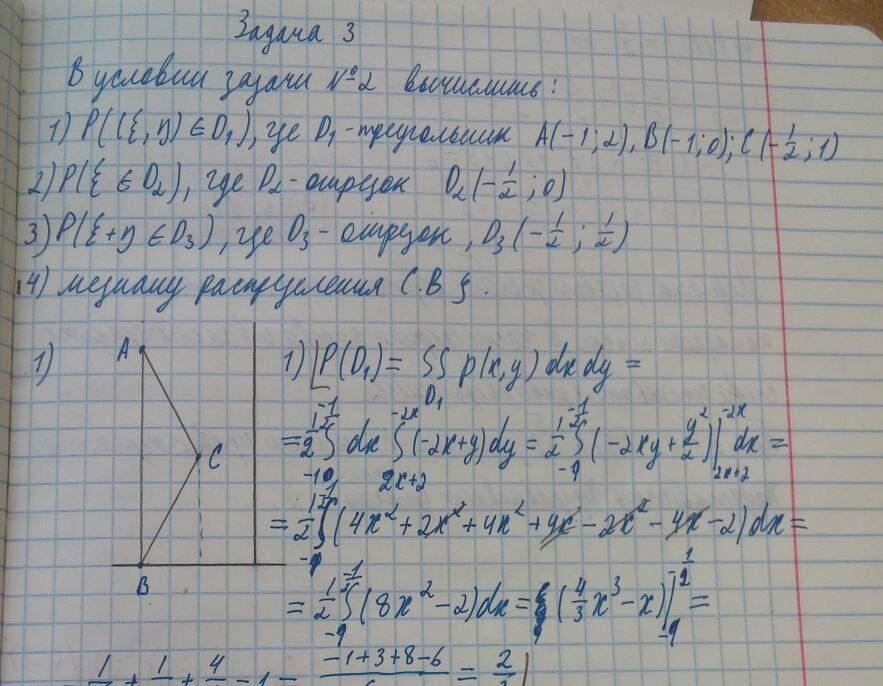 Задача 3
В условии задачи №2 вычислить:
1) P((ξ,η) ∈ D₁), где D₁-треугольник A(-1;2), B(-1;0); C(-1/2;1)
2) P(ξ ∈ D₂), где D₂-отрезок D₂(-1/2;0)
3) P(ξ+η ∈ D₃), где D₃-отрезок, D₃(-1/2;1/2)
4) медиану распределения С.В ξ.
1)
A
C
B
1) P(D₁) = ∫∫_{D₁} p(x,y) dx dy =
= 1/2 ∫_{-1}^{-1/2} dx ∫_{2x+2}^{-2x} (-2x+y)dy = 1/2 ∫_{-1}^{-1/2} (-2xy + y²/2)|_{2x+2}^{-2x} dx =
= 1/2 ∫_{-1}^{-1/2} (4x²+2x²+4x²+4x-2x²-4x-2)dx =
= 1/2 ∫_{-1}^{-1/2} (8x²-2)dx = (4/3 x³-x)|_{-1}^{-1/2} =
-1+3+8-6